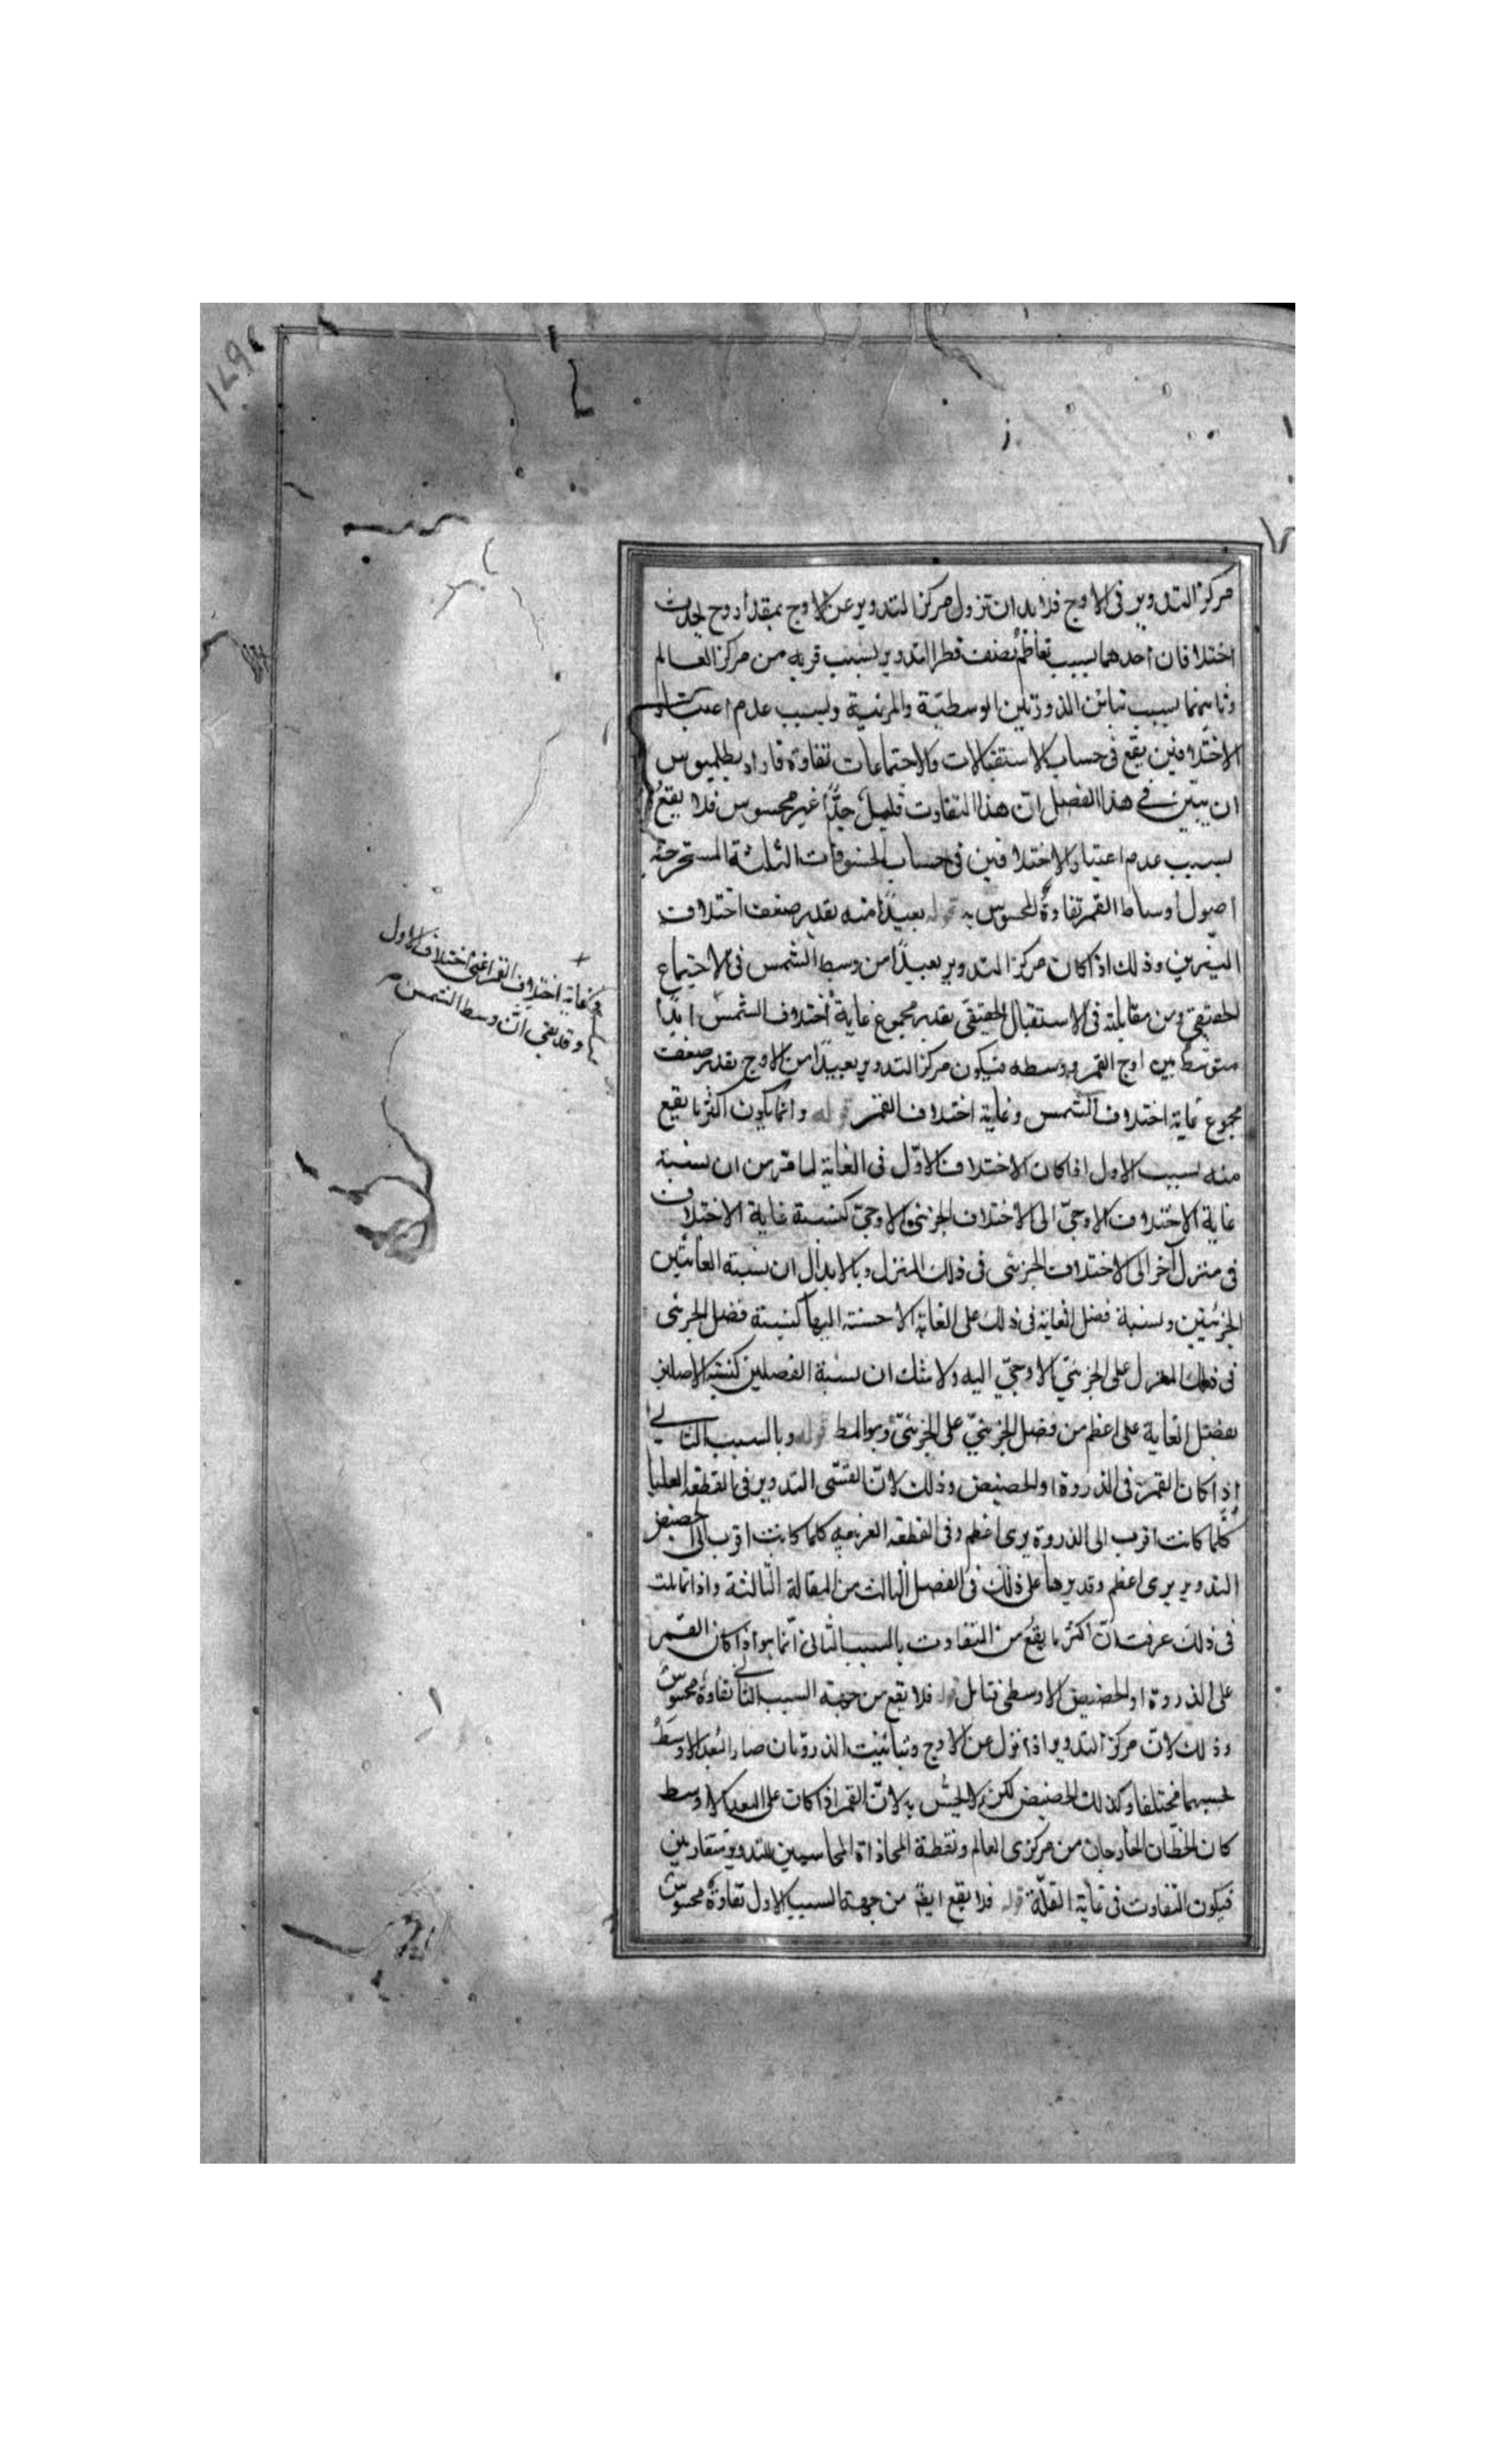 مركز التدوير فى الاوج فلابد ان تزول مركز التدوير عن الاوج بمقدار وح يحدث
اختلافان احدهما بسبب تعاظم نصف قطر التدوير بسبب قربه من مركز العالم
وثانيهما بسبب تباين الذروتين الوسطيّة والمرئية وبسبب عدم اعتبار
الاختلافين يقع فى حساب الاستقبالات والاجتماعات تفاوة فاراد بطلميوس
ان يبيّن فى هذا الفصل انّ هذا التفاوت قليل جدًّا غير محسوس فلا يقع
بسبب عدم اعتبار الاختلافين فى حساب الخسوفات الثلثة المستخرجة
اصول اوساط القمر تفاوة محسوس به قوله بعيدًا منه بقدر ضعف اختلاف
النيّرين وذلك اذ كان مركز التدوير بعيدًا من وسط الشمس فى الاجتماع
الحقيقى ومن مقابلته فى الاستقبال الحقيقى بقدر مجموع غاية اختلاف الشمس ابدًا
متوسّط بين اوج القمر ووسطه فيكون مركز التدوير بعيدًا من الاوج بقدر ضعف
مجموع غاية اختلاف الشمس وغاية اختلاف القمر قوله وانما يكون اكثر ما يقع
منه بسبب الاول اذا كان الاختلاف الاوّل فى الغاية لما مرّ من ان نسبة
غاية الاختلاف الاوجىّ الى الاختلاف الجزئى الاوجىّ كنسبة غاية الاختلاف
فى منزل آخر الى الاختلاف الجزئى فى ذلك المنزل وبالابدال ان نسبة الغائتين
الجزئيتين ونسبة فضل الغاية فى ذلك على الغاية الاحسنة اليها كنسبة فضل الجزئى
فى ذلك المنزل على الجزئىّ الاوجىّ اليه ولا شك ان نسبة الفضلين كنسبة الاصلين
بفضل الغاية على اعظم من فضل الجزئىّ على الجزئىّ وهو المط قوله وبالسبب الثانى
اذا كان القمر فى الذروة او الحضيض وذلك لانّ القسّى التدوير فى القطعة العليا
كلما كانت اقرب الى الذروة يرى اعظم وفى القطعة كلما كانت اقرب الى حضيض
التدوير يرى اعظم وقد برهنا على ذلك فى الفصل الثالث من المقالة الثالثة واذا تاملت
فى ذلك عرفت انّ اكثر ما يقع من التفاوت بالسبب الثانى انّما هو اذا كان القمر
على الذروة او الحضيض الاوسطى تتامل قوله فلا يقع من جهة السبب الثانى تفاوة محسوس
وذلك لانّ مركز التدوير اذا نزل عن الاوج وتباينت الذروتان صار البعد الاوسط
بحسبهما مختلفا وكذلك الحضيض لكن لا يحسّ به لانّ القمر اذا كان على البعد الاوسط
كان الخطّان الخارجان من مركزى العالم ونقطة المحاذاة المماسين للتدوير متقاربين
فيكون التفاوت فى غاية القلّة قوله فلا يقع ايضا من جهة السبب الاول تفاوة محسوس
وغاية اختلاف القمر اعنى اختلافه الاول
وقد بقى انّ وسط الشمس م